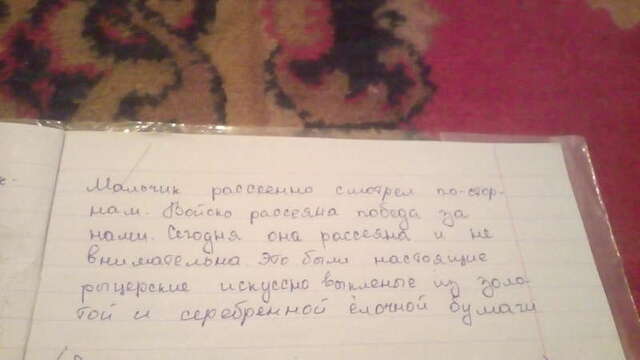 Мальчик рассеенно смотрел по-стор-
нам. Войско рассеяна победа за
нами. Сегодня она рассеяна и не
внимательна. Это были настоящие
рыцерские искуссно выкленые из золо-
той и серебренной ёлочной бумаги